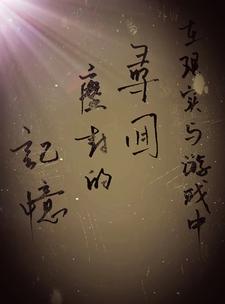 在现实与游戏中
寻回
尘封的
記憶